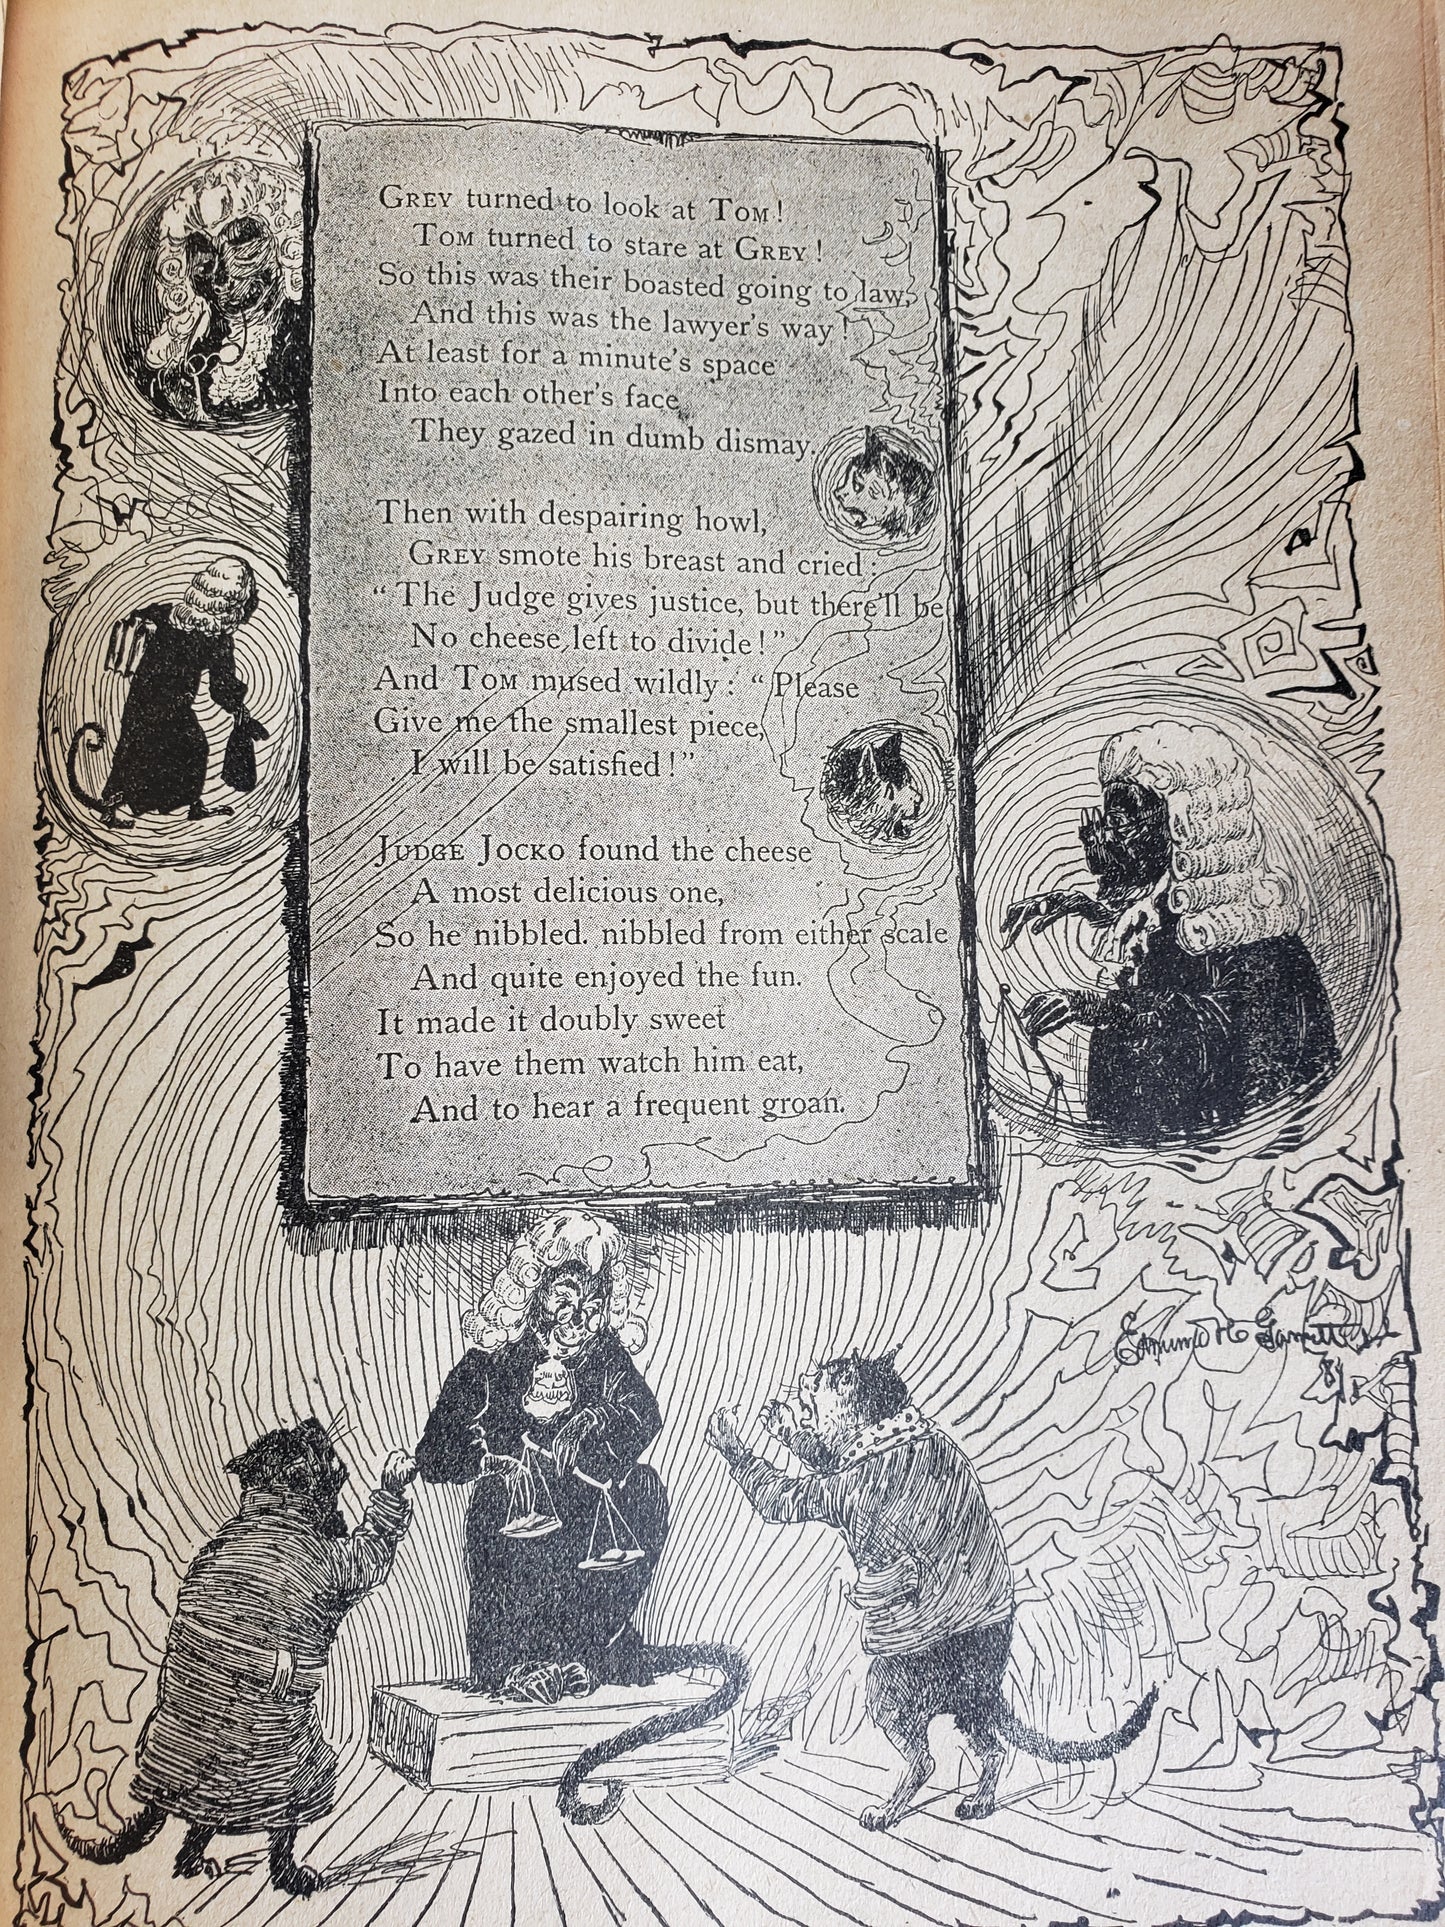 GREY turned to look at TOM!
TOM turned to stare at GREY!
So this was their boasted going to law,
And this was the lawyer's way!
At least for a minute's space
Into each other's face
They gazed in dumb dismay.
Then with despairing howl,
GREY smote his breast and cried:
"The Judge gives justice, but there'll be
No cheese left to divide!"
And TOM mused wildly: "Please
Give me the smallest piece,
I will be satisfied!"
JUDGE JOCKO found the cheese
A most delicious one,
So he nibbled. nibbled from either scale
And quite enjoyed the fun.
It made it doubly sweet
To have them watch him eat,
And to hear a frequent groan.
Edmund H Garrett